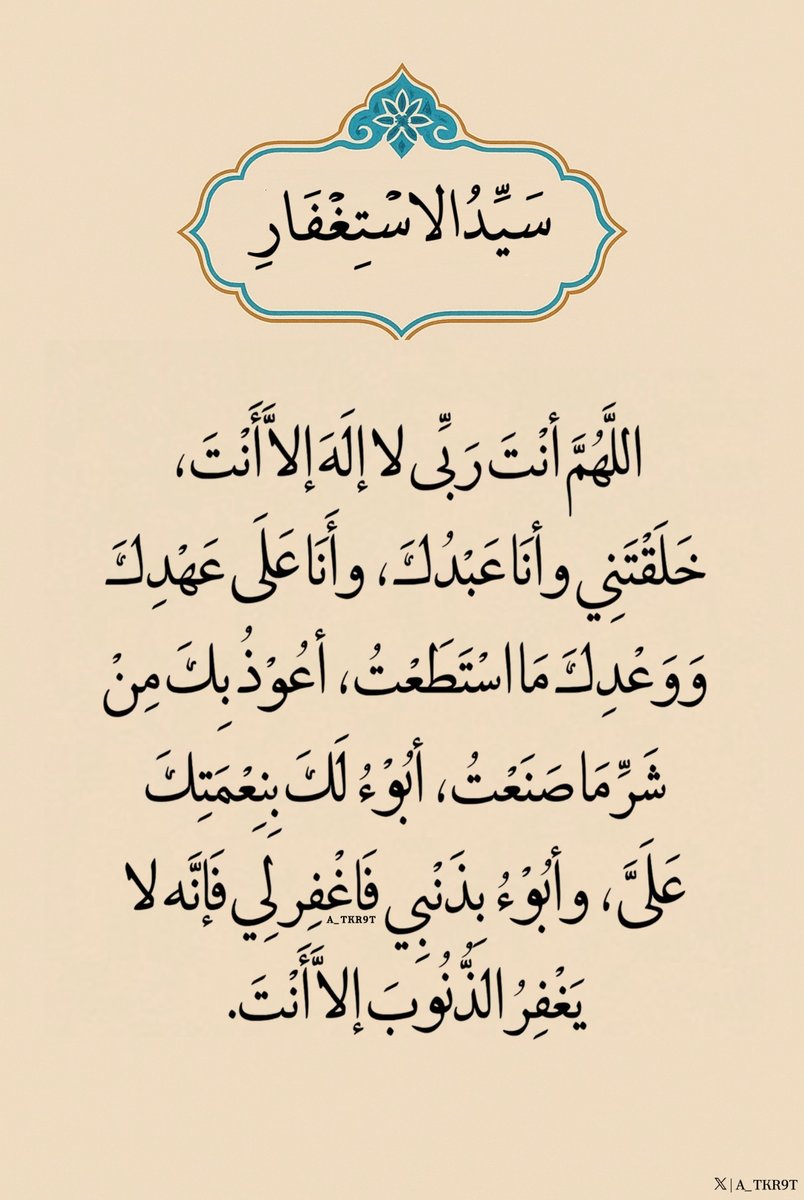 سَيِّدُ الاسْتِغْفَارِ
اللَّهُمَّ أنْتَ رَبِّى لا إلَهَ إلاَّ أَنْتَ،
خَلَقْتَنِي وأنَا عَبْدُكَ، وأَنَا عَلَى عَهْدِكَ
وَوَعْدِكَ مَا اسْتَطَعْتُ، أعُوْذُ بِكَ مِنْ
شَرِّ مَا صَنَعْتُ، أبُوْءُ لَكَ بِنِعْمَتِكَ
عَلَىَّ، وأبُوْءُ بِذَنْبِي فَاغْفِر لِي فَإنَّه لا
A_TKR9T
يَغْفِرُ الذُّنُوبَ إلاَّ أَنْتَ.
𝕏 | A_TKR9T